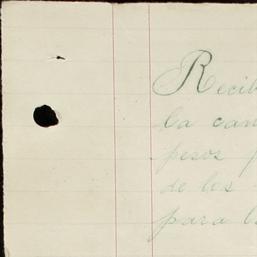 Recib
la can
pesos p
de los
para l